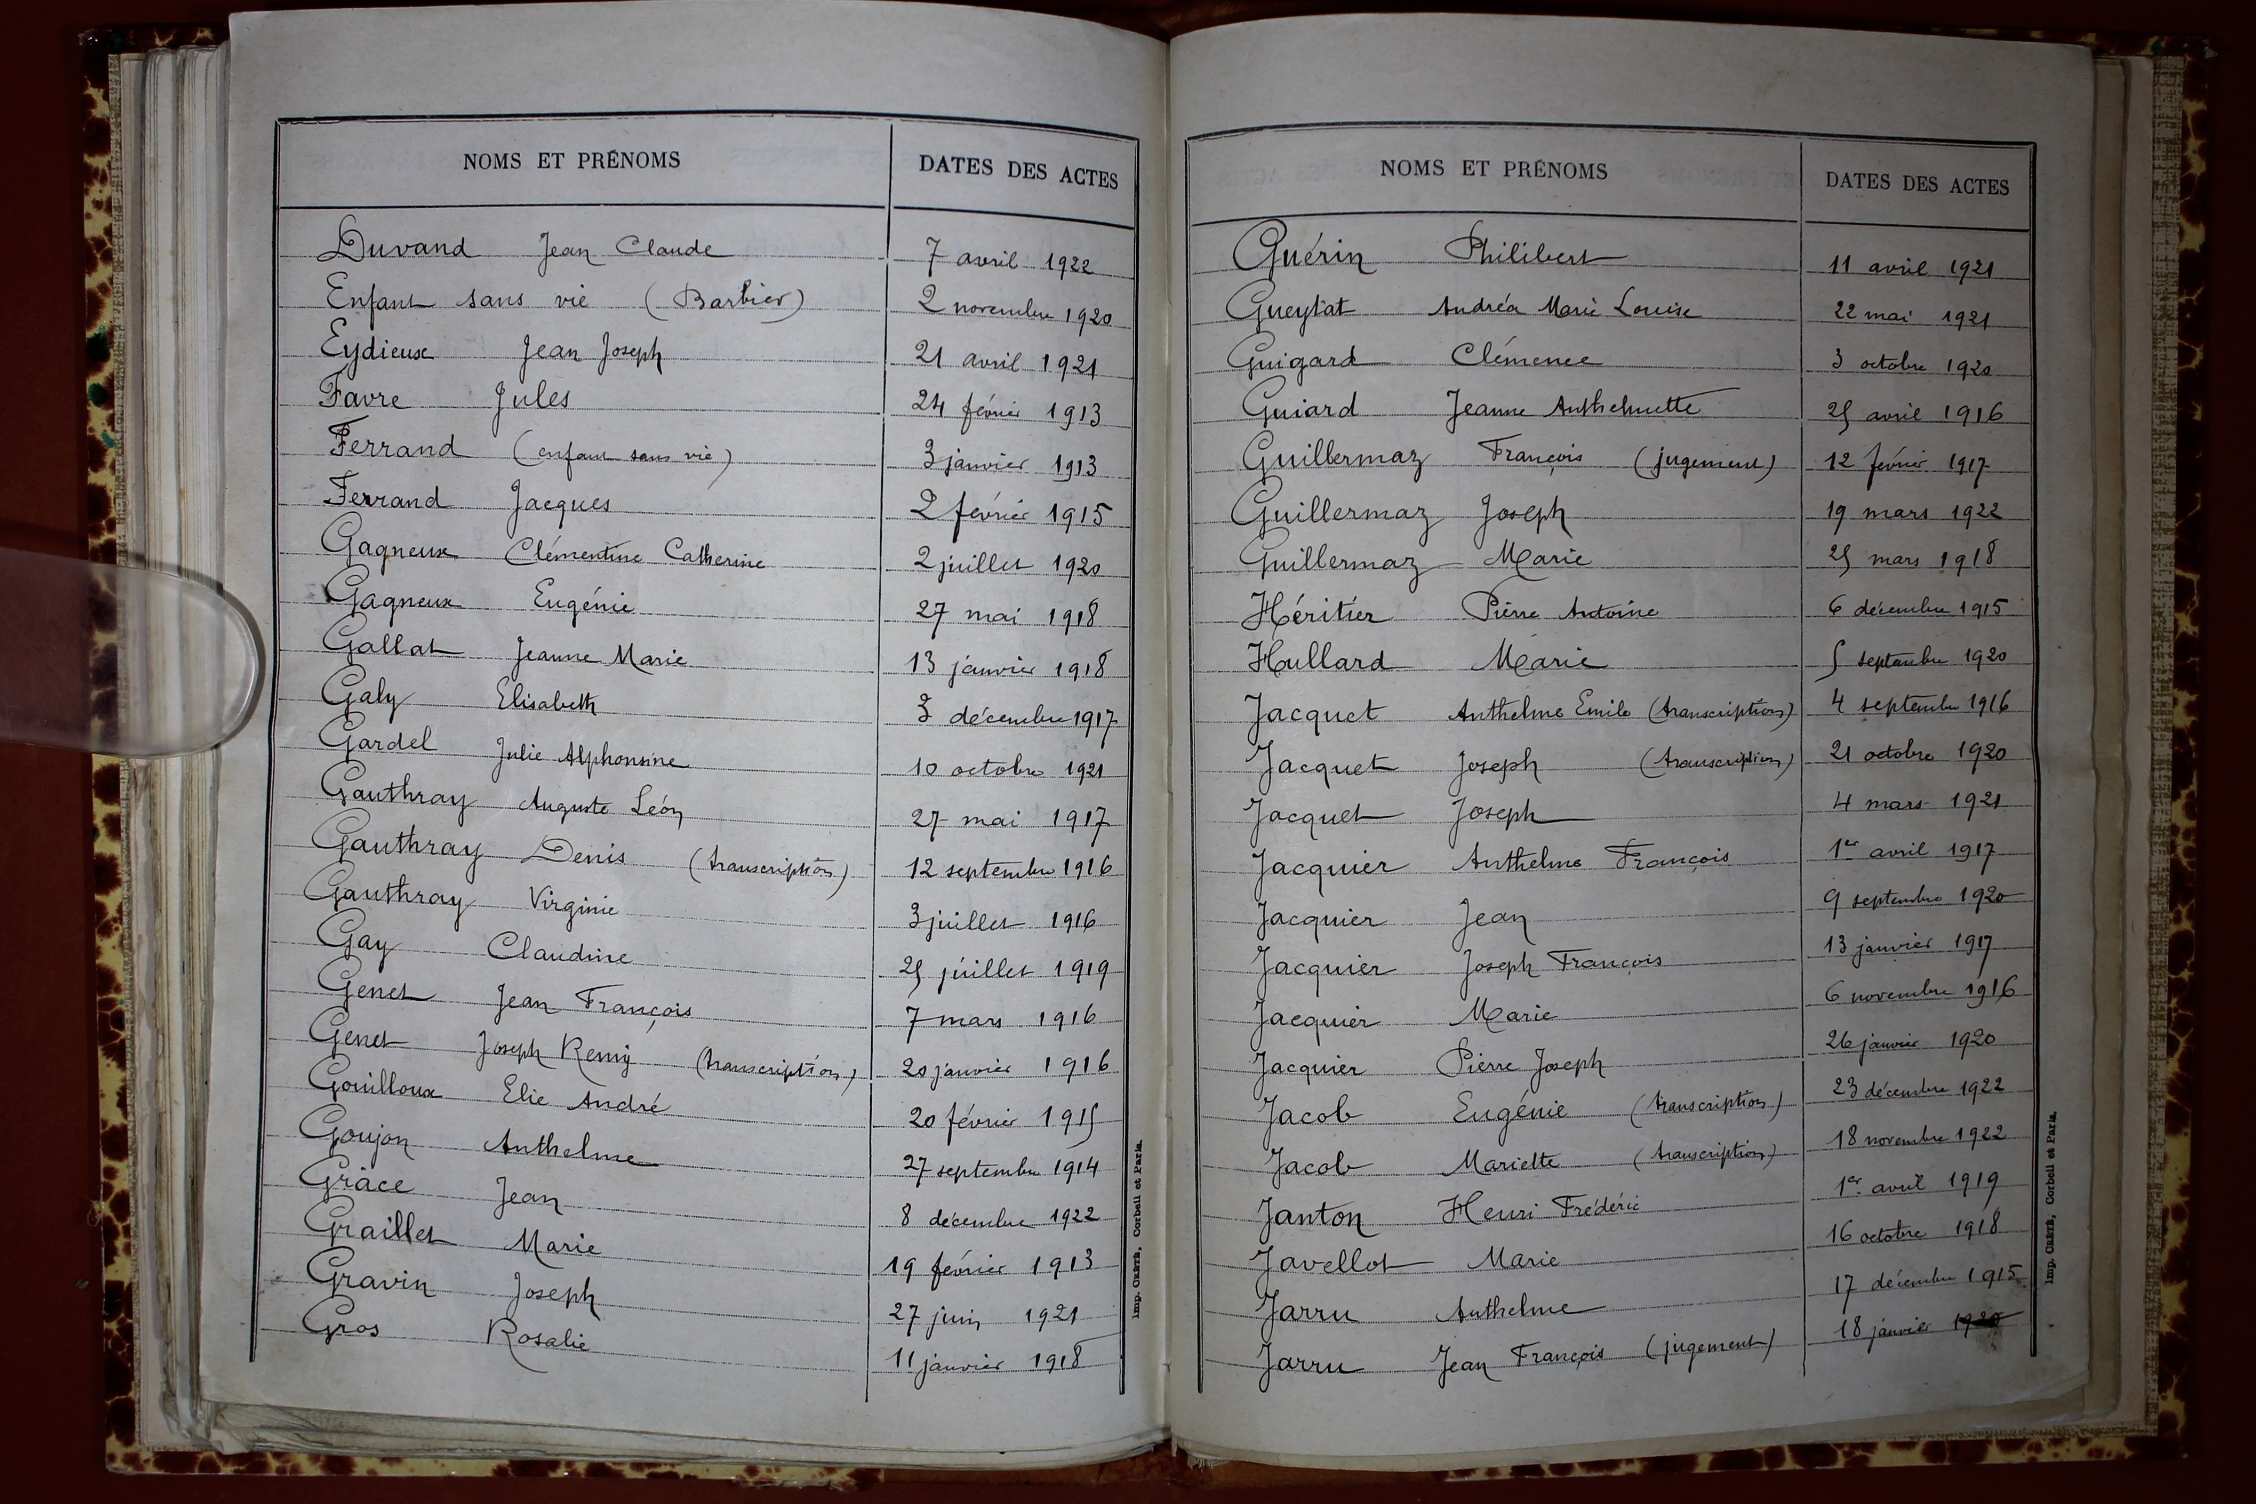 NOMS ET PRÉNOMS DATES DES ACTES
Duvand Jean Claude 7 avril 1922
Enfant sans vie (Barbier) 2 novembre 1920
Eydieux Jean Joseph 21 avril 1921
Favre Jules 24 février 1913
Ferrand (enfant sans vie) 3 janvier 1913
Ferrand Jacques 2 février 1915
Gagneux Clémentine Catherine 2 juillet 1920
Gagneux Eugénie 27 mai 1918
Gallat Jeanne Marie 13 janvier 1918
Galy Elisabeth 3 décembre 1917
Gardel Julie Alphonsine 10 octobre 1921
Gauthray Auguste Léon 27 mai 1917
Gauthray Denis (transcription) 12 septembre 1916
Gauthray Virginie 3 juillet 1916
Gay Claudine 25 juillet 1919
Genet Jean François 7 mars 1916
Genet Joseph Remy (transcription) 20 janvier 1916
Gouilloux Elie André 20 février 1915
Goujon Anthelme 27 septembre 1914
Grâce Jean 8 décembre 1922
Graillet Marie 19 février 1913
Gravin Joseph 27 juin 1921
Gros Rosalie 11 janvier 1918
Imp. CRÉTÉ, Corbeil et Paris.
NOMS ET PRÉNOMS DATES DES ACTES
Guérin Philibert 11 avril 1921
Gueytat Andréa Marie Louise 22 mai 1921
Guigard Clémence 3 octobre 1920
Guiard Jeanne Anthelmette 25 avril 1916
Guillermaz François (jugement) 12 février 1917
Guillermaz Joseph 19 mars 1922
Guillermaz Marie 25 mars 1918
Héritier Pierre Antoine 6 décembre 1915
Hullard Marie 5 septembre 1920
Jacquet Anthelme Emile (transcription) 4 septembre 1916
Jacquet Joseph (transcription) 21 octobre 1920
Jacquet Joseph 4 mars 1921
Jacquier Anthelme François 1er avril 1917
Jacquier Jean 9 septembre 1920
Jacquier Joseph François 13 janvier 1917
Jacquier Marie 6 novembre 1916
Jacquier Pierre Joseph 26 janvier 1920
Jacob Eugénie (transcription) 23 décembre 1922
Jacob Mariette (transcription) 18 novembre 1922
Janton Henri Frédéric 1er avril 1919
Javellot Marie 16 octobre 1918
Jarru Anthelme 17 décembre 1915
Jarru Jean François (jugement) 18 janvier 1920
Imp. CRÉTÉ, Corbeil et Paris.